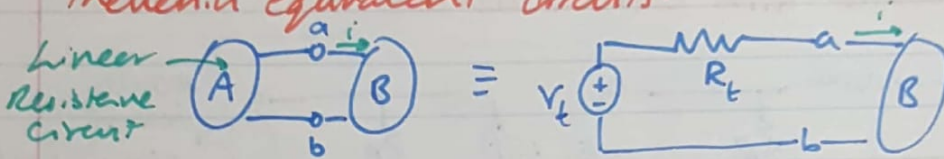 Thevenin equivalent circuits
a i
Linear
Resistive
Circuit
A B ≡ Vt + - Rt a i B
b b